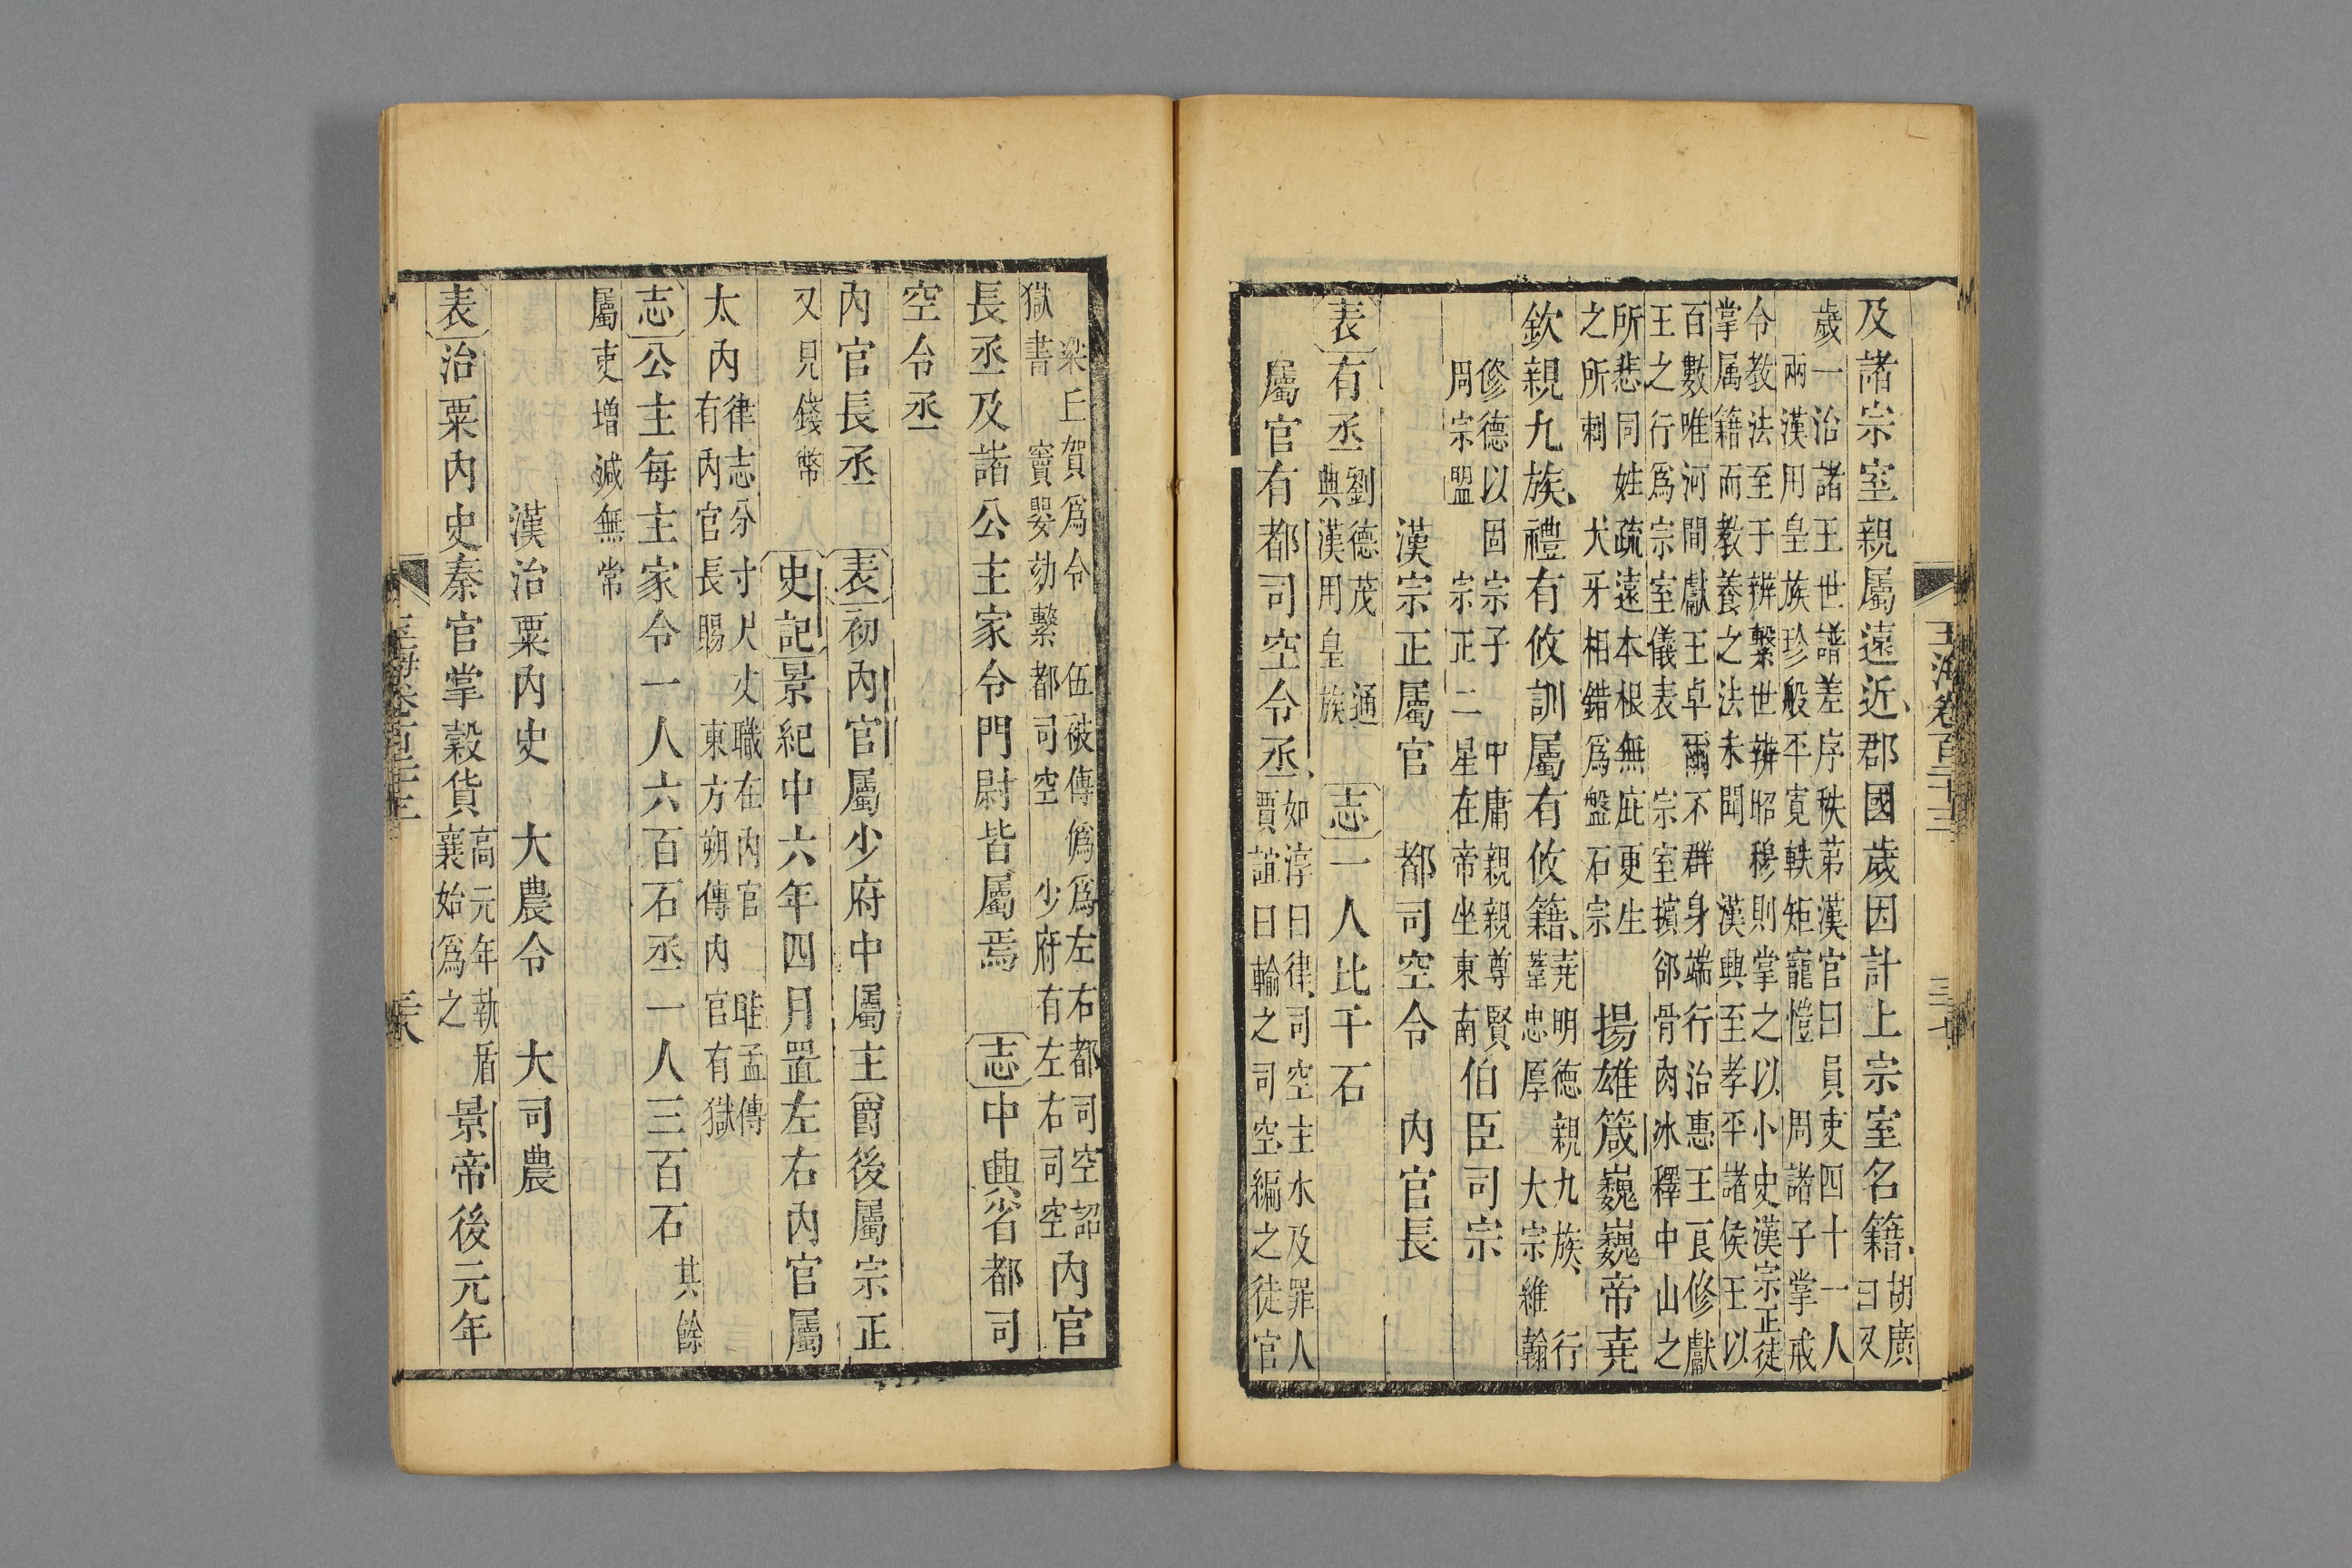 及諸宗室親屬遠近郡國歲因計上宗室名籍胡廣曰又
歲一治諸王世譜差序秩苐漢官曰員吏四十一人
兩漢用皇族珍般平寬軼矩寵愷 周諸子掌戒
令教法至于辨繫世辨昭穆則掌之以小史漢宗正徒
掌属籍而教養之法未聞 漢興至孝平諸侯王以
百數唯河間獻王卓爾不群身端行治惠王良修獻
王之行爲宗室儀表 宗室擯郤骨肉冰釋中山之
所悲同姓疏遠本根無庇更生
之所刺 犬牙相錯爲盤石宗 揚雄箴巍巍帝堯
欽親九族禮有攸訓屬有攸籍堯明德親九族 行葦忠厚 大宗維翰
修德以固宗子 中庸親親尊賢
周宗盟 宗正二星在帝坐東南 伯臣司宗
漢宗正屬官 都司空令 內官長
表 有丞劉德茂 通典漢用皇族 志 一人比千石
屬官有都司空令丞如淳曰律司空主水及罪人賈誼曰輸之司空編之徒官
王海卷百二十三
三七
梁丘賀爲令 伍被傳僞爲左右都司空詔
獄書 竇嬰劾繫都司空 少府有左右司空 內官
長丞及諸公主家令門尉皆屬焉 志 中興省都司
空令丞
內官長丞 表 初內官屬少府中屬主爵後屬宗正
又見錢幣 史記 景紀中六年四月置左右內官屬
太內律志分寸尺丈職在內官 眭孟傳有內官長賜 東方朔傳內官有獄
志 公主每主家令一人六百石丞一人三百石其餘
屬吏增減無常
漢治粟內史 大農令 大司農
表 治粟內史秦官掌穀貨高元年執盾襄始爲之景帝後元年